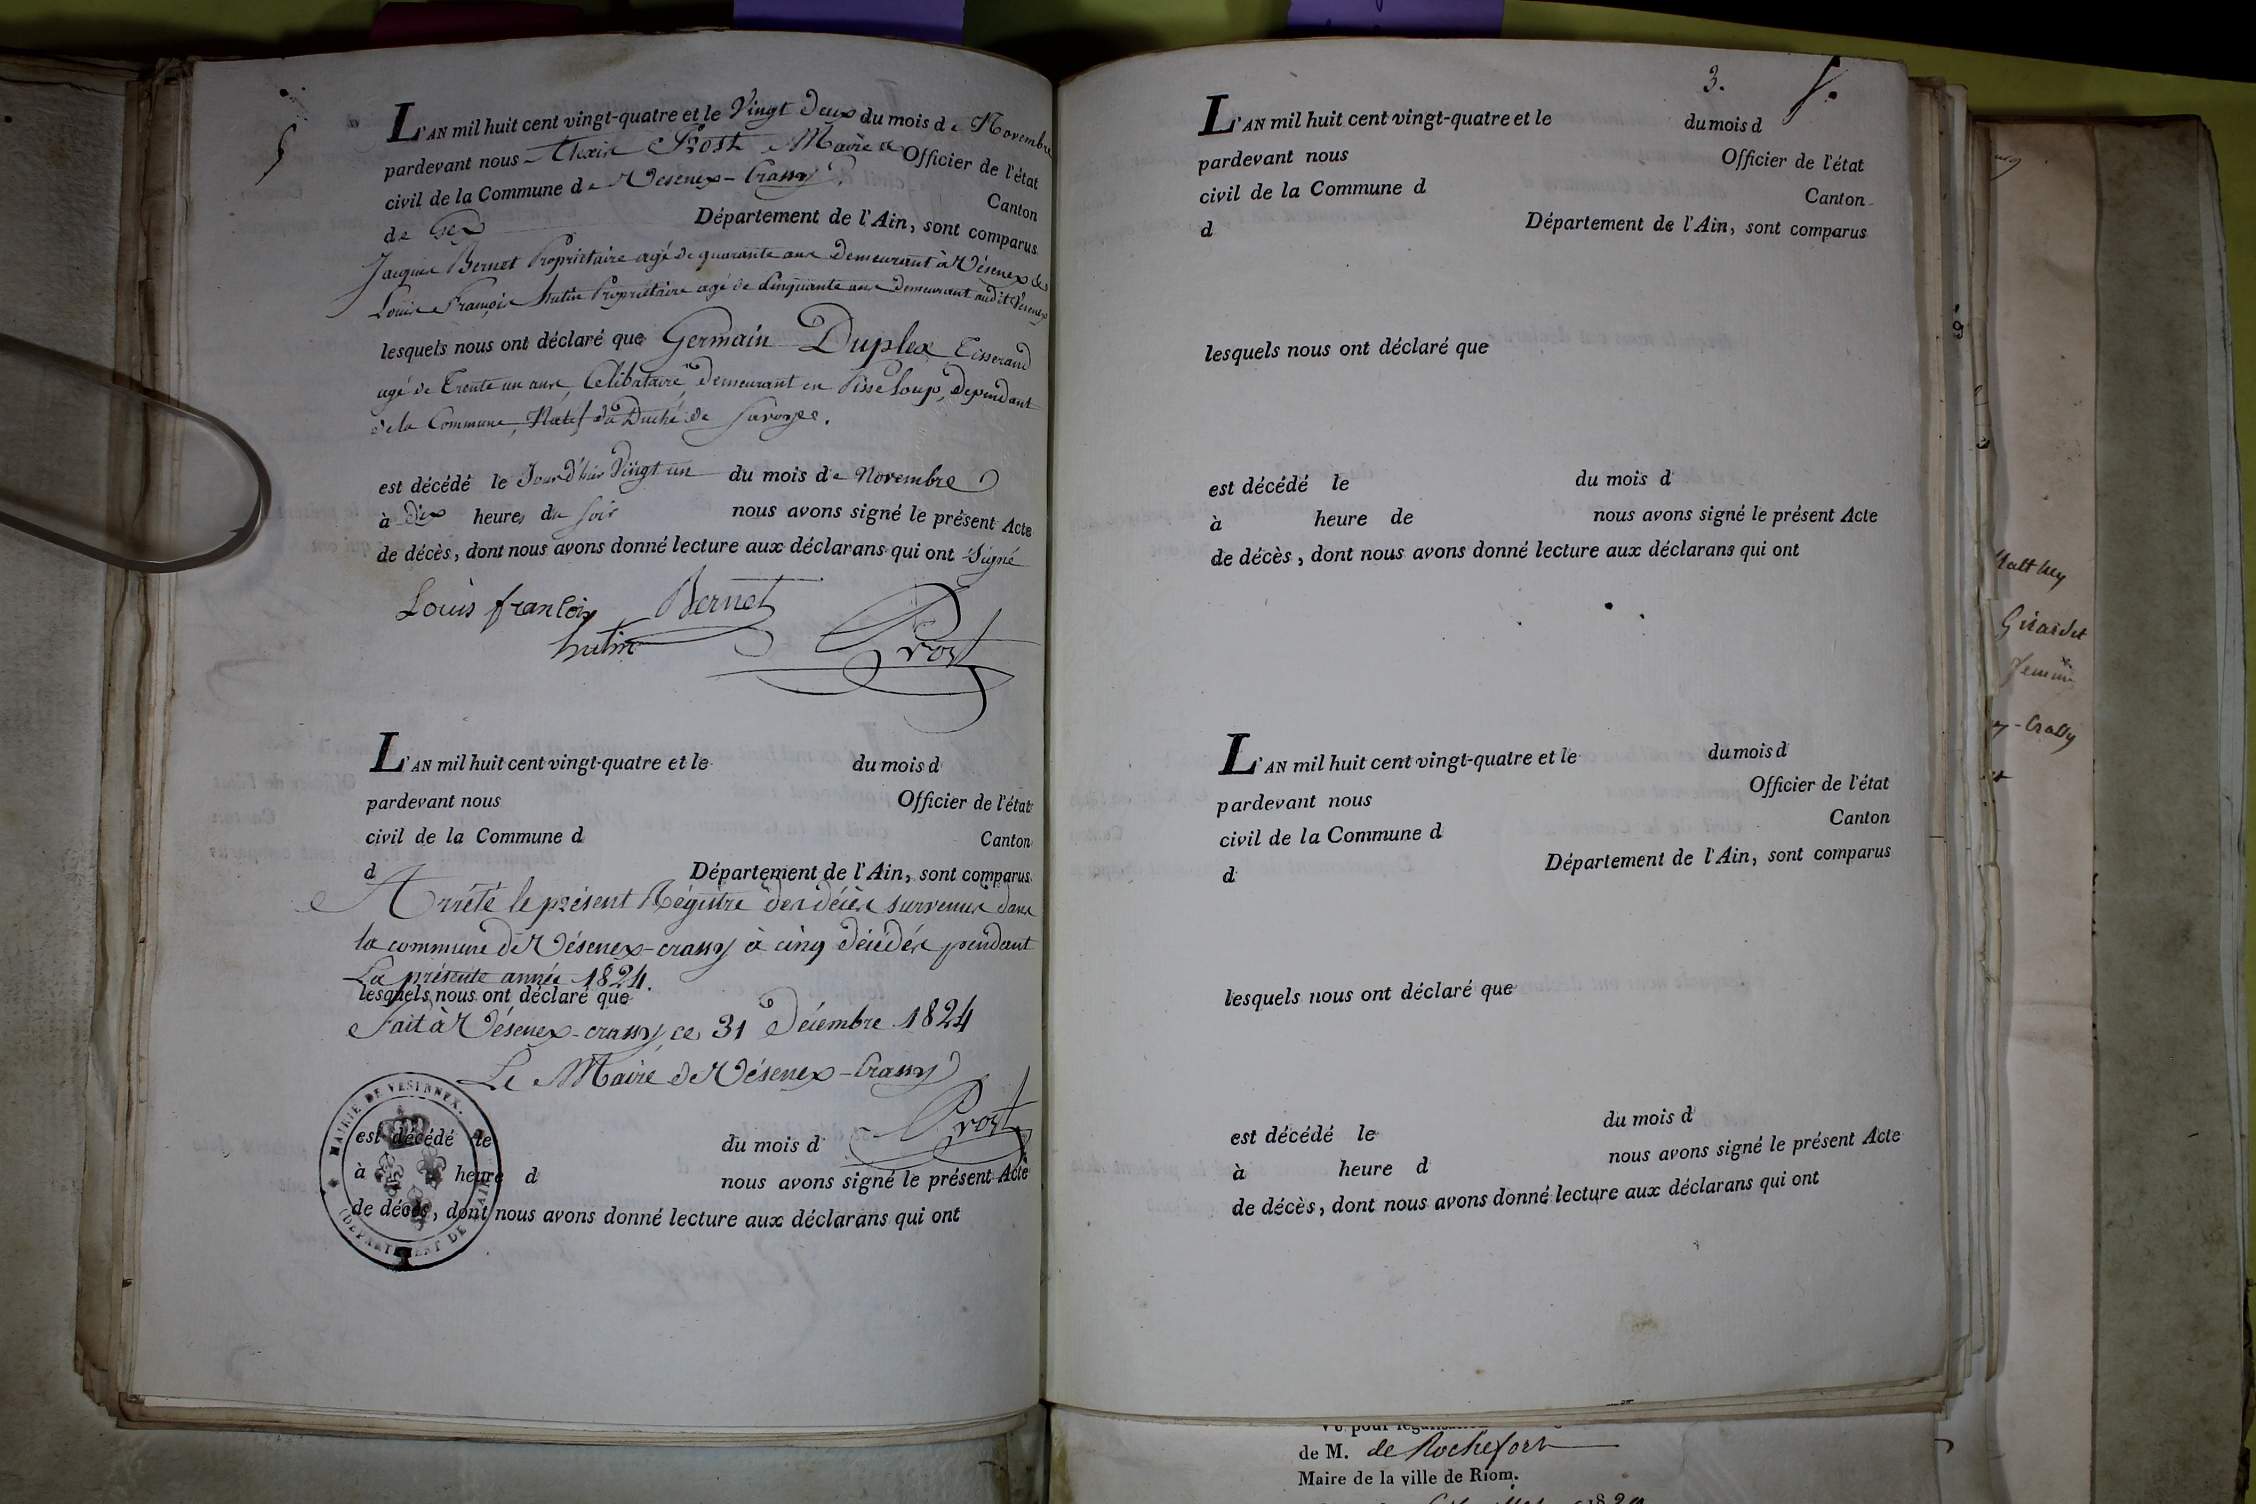 5
L'AN mil huit cent vingt-quatre et le Vingt Deux du mois de Novembre
pardevant nous Alexis Prost Maire & Officier de l'état
civil de la Commune de Vésenex-Crassy Canton
de Gex Département de l'Ain, sont comparus
Jacques Bernet Propriétaire agé de quarante ans Demeurant à Vésenex &
Louis François hutin Propriétaire agé de Cinquante ans Demeurant audit Vésenex
lesquels nous ont déclaré que Germain Duplex Tisserand
agé de Trente un ans Célibataire Demeurant en Pisseloup, Dépendant
de la Commune, Natif du Duché de Savoye.
est décédé le Jourd'hui Vingt un du mois de Novembre
à dix heures du soir nous avons signé le présent Acte
de décès, dont nous avons donné lecture aux déclarans qui ont Signé
Louis françois Bernet
hutin Prost
L'AN mil huit cent vingt-quatre et le du mois d
pardevant nous Officier de l'état
civil de la Commune d Canton
d Département de l'Ain, sont comparus
Arrêté le présent Régistre des décès survenus dans
la commune de Vésenex-crassy à cinq décédés pendant
La présente année 1824.
lesquels nous ont déclaré que
Fait à Vésenex-crassy, ce 31 Décembre 1824
Le Maire de Vésenex-Crassy
Prost
MAIRIE DE VESENNEX.
(DEPARTEMENT DE L'AIN)
est décédé le du mois d
à heure d nous avons signé le présent Acte
de décès, dont nous avons donné lecture aux déclarans qui ont
3.
L'AN mil huit cent vingt-quatre et le du mois d
pardevant nous Officier de l'état
civil de la Commune d Canton
d Département de l'Ain, sont comparus
lesquels nous ont déclaré que
est décédé le du mois d
à heure de nous avons signé le présent Acte
de décès, dont nous avons donné lecture aux déclarans qui ont
L'AN mil huit cent vingt-quatre et le du mois d
pardevant nous Officier de l'état
civil de la Commune d Canton
d Département de l'Ain, sont comparus
lesquels nous ont déclaré que
est décédé le du mois d
à heure d nous avons signé le présent Acte
de décès, dont nous avons donné lecture aux déclarans qui ont
Girardet
femme
Crassy
Vu pour
de M. de Rochefort
Maire de la ville de Riom.